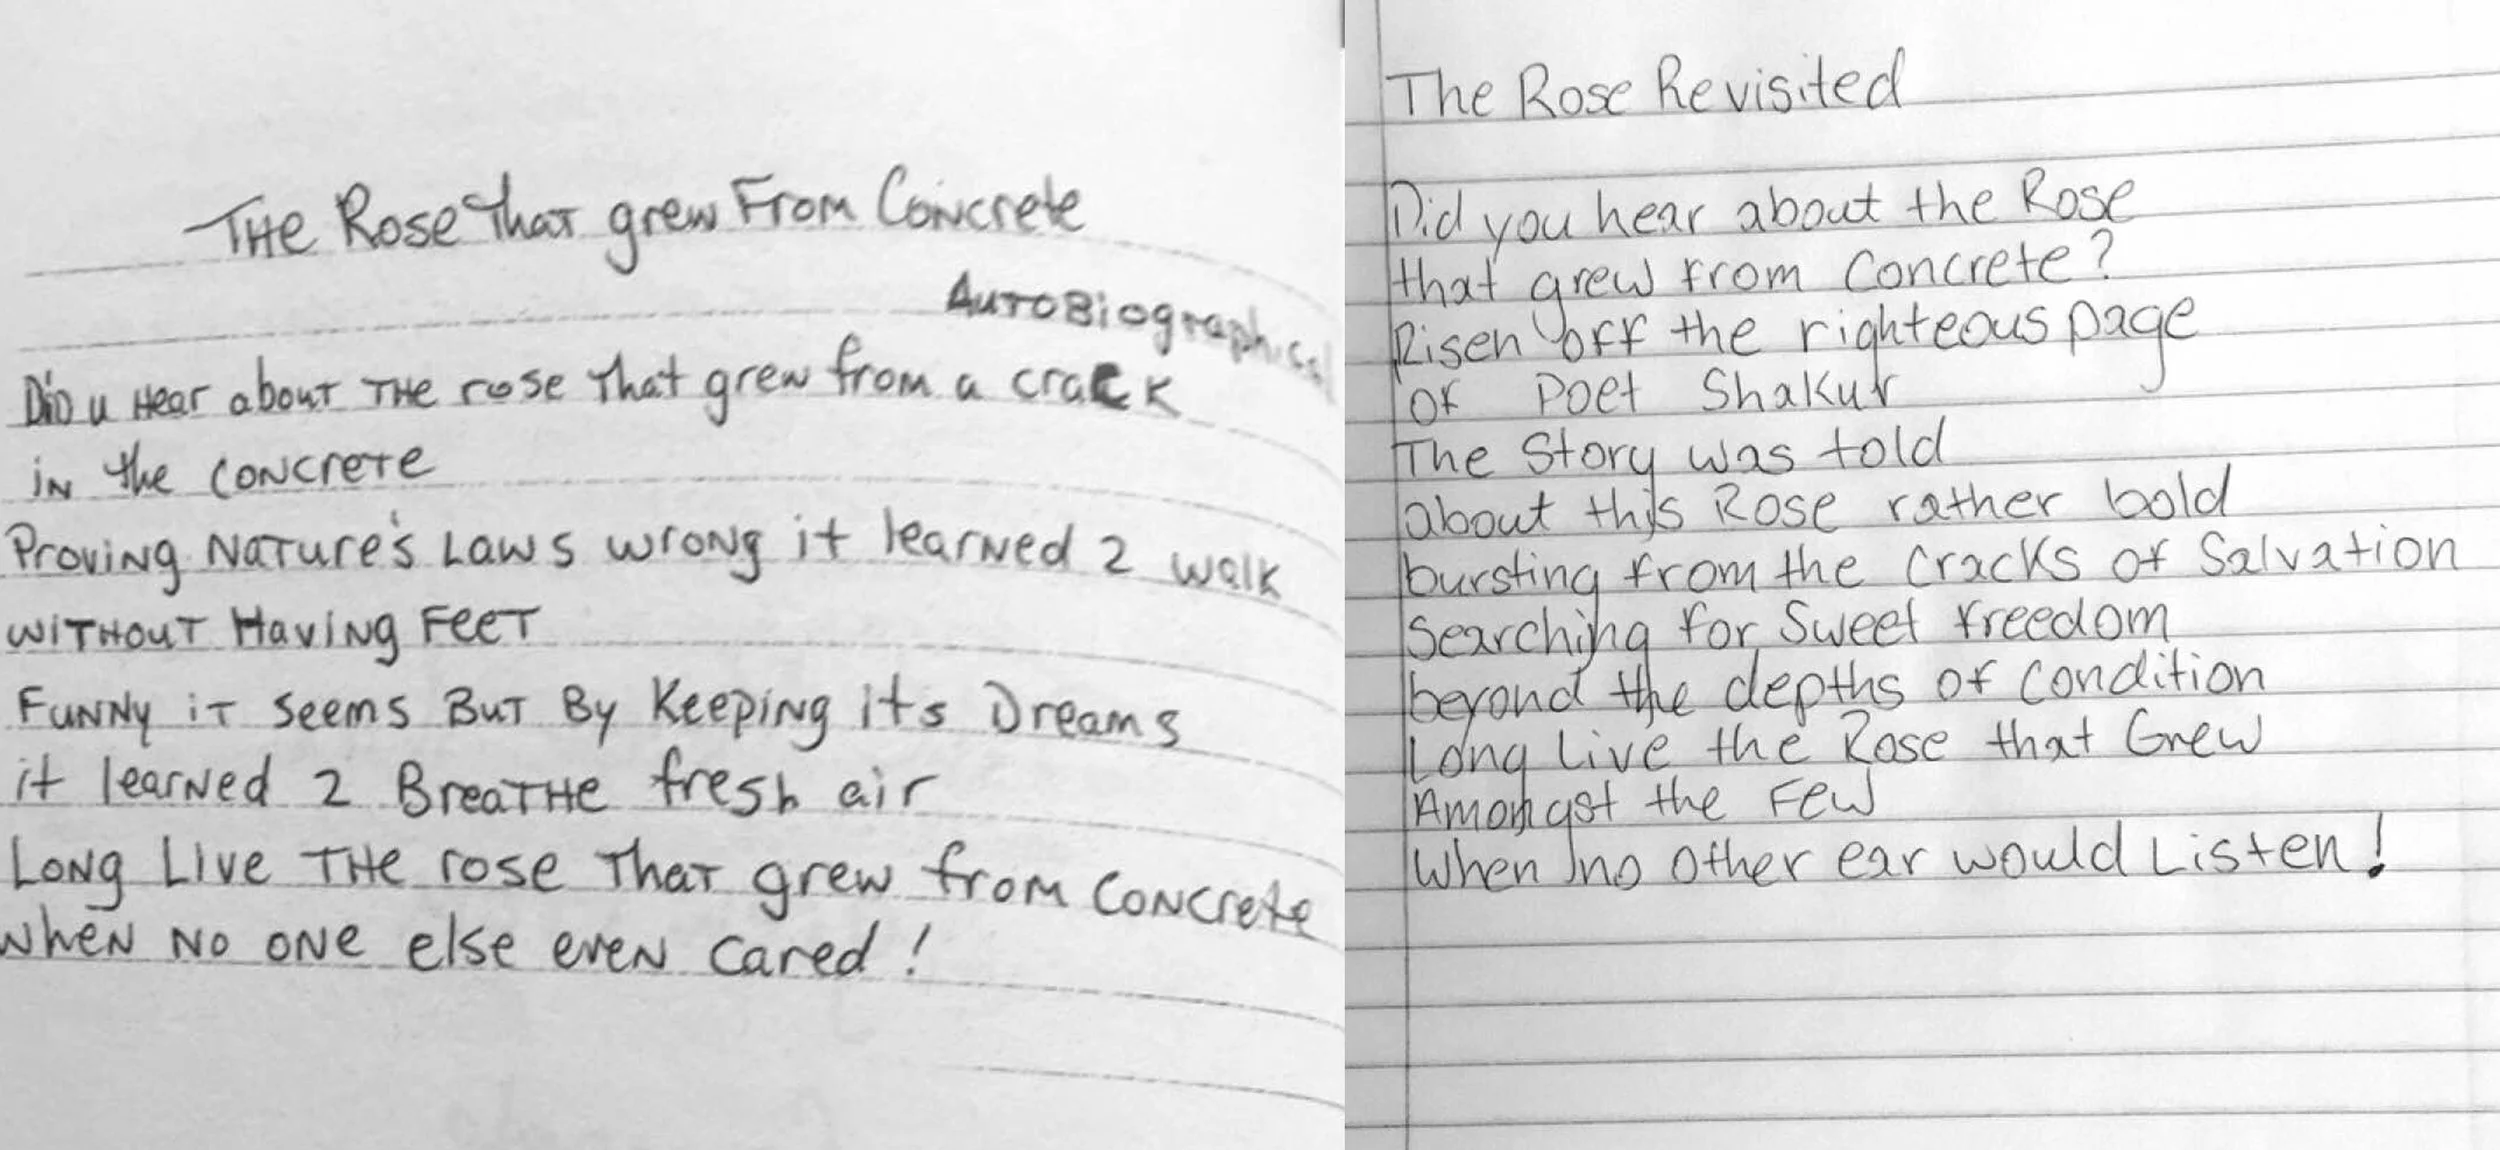 THE Rose That grew From Concrete
AutoBiographical
Did u Hear about THE rose that grew from a crack
in the concrete
Proving Nature's Laws wrong it learned 2 walk
without Having Feet
Funny it seems But By Keeping its Dreams
it learned 2 Breathe fresh air
Long Live THE rose That grew from concrete
when no one else even cared!
The Rose Revisited
Did you hear about the Rose
that grew from Concrete?
Risen off the righteous page
of Poet Shakur
The Story was told
about this Rose rather bold
bursting from the Cracks of Salvation
Searching for Sweet freedom
beyond the depths of Condition
Long Live the Rose that Grew
Amongst the Few
When no other ear would Listen!